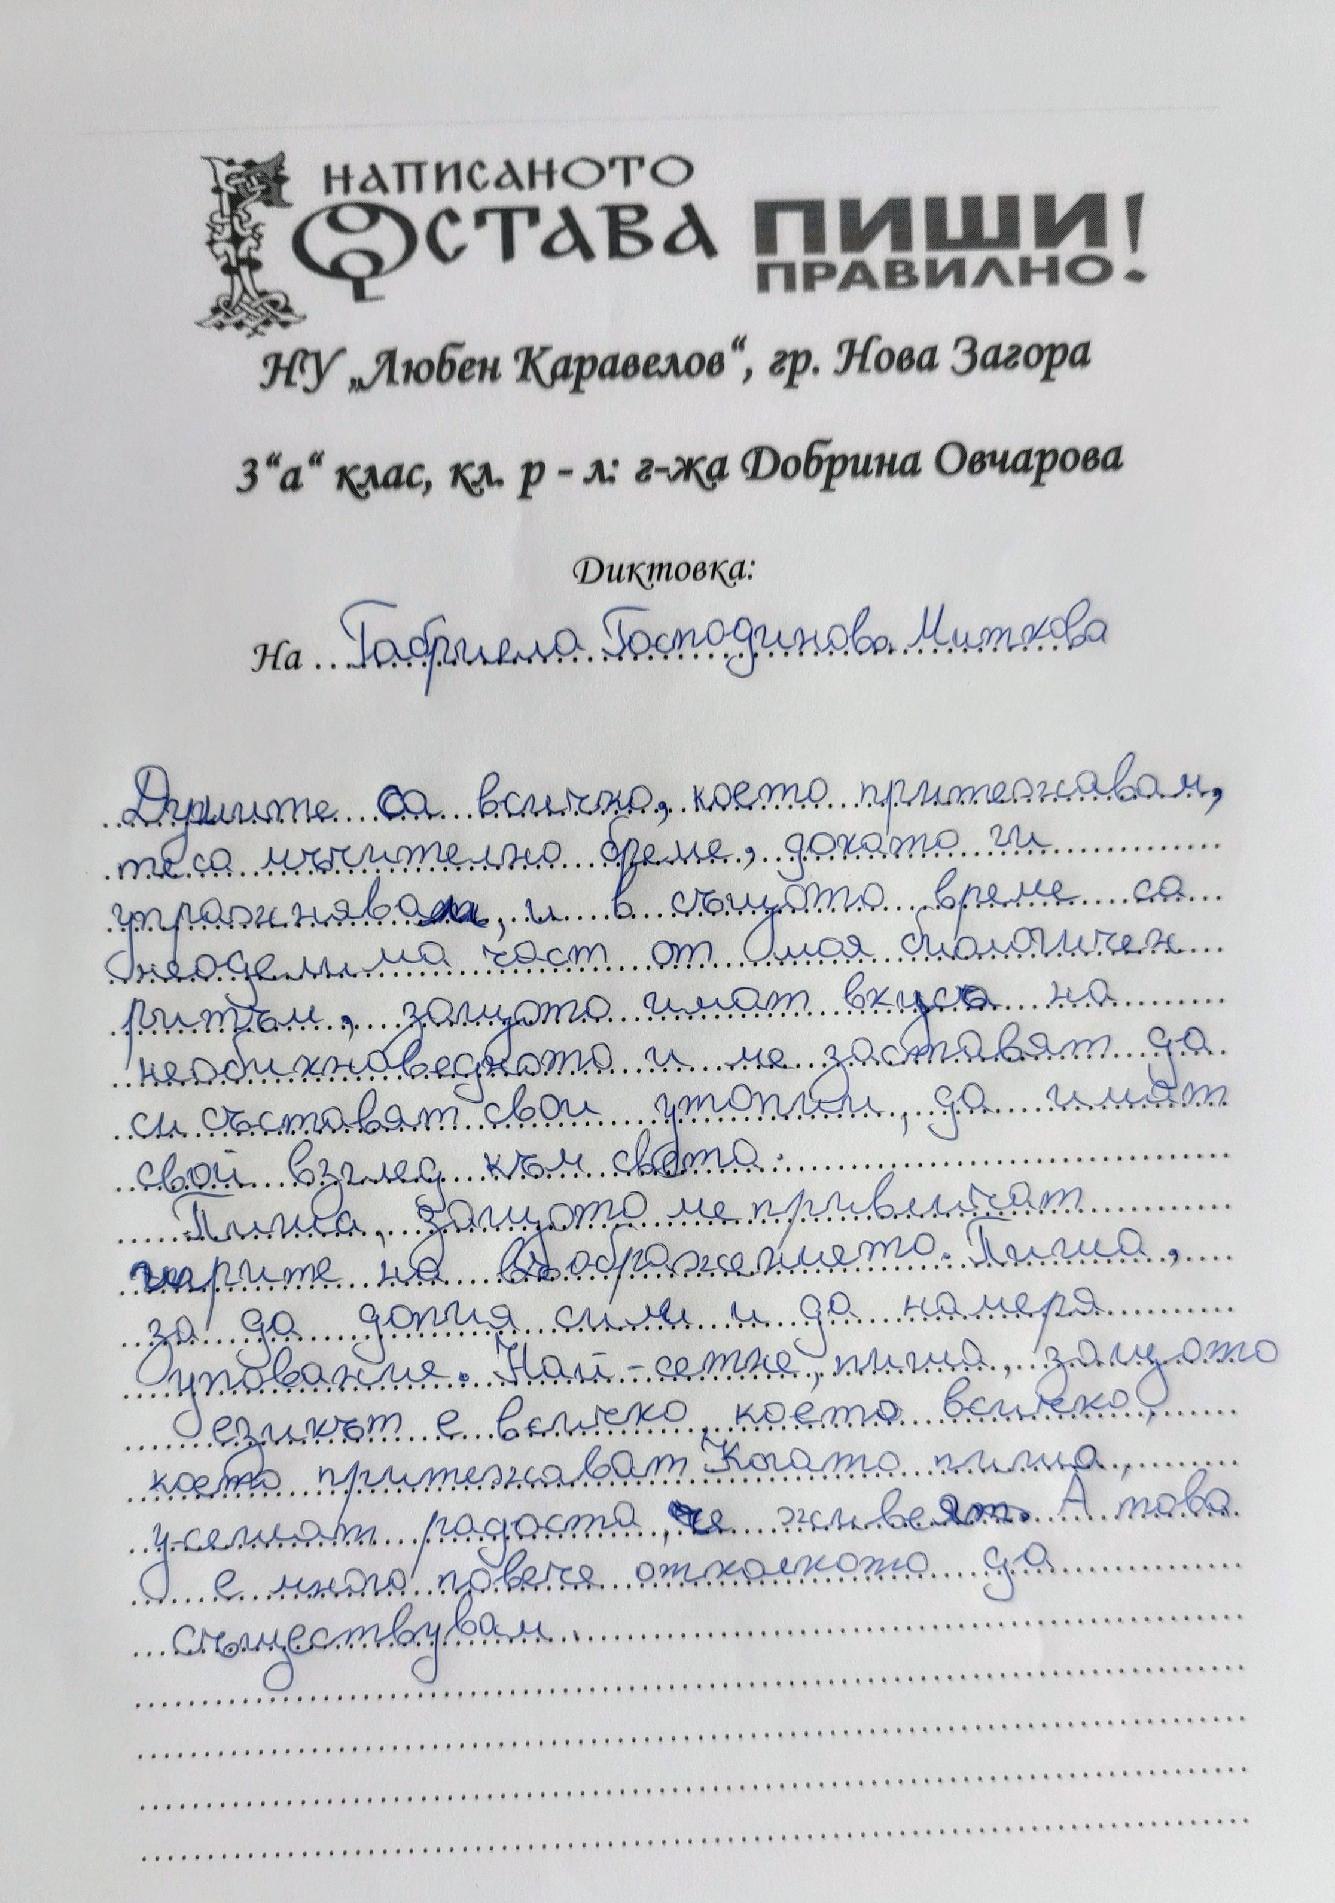 НАПИСАНОТО
ОСТАВА
ПИШИ
ПРАВИЛНО!
НУ „Любен Каравелов“, гр. Нова Загора
3“а“ клас, кл. р - л: г-жа Добрина Овчарова
Диктовка:
На Габриела Господинова Миткова
Думите са всичко, което притежавам,
те са мъчително бреме, докато ги
упражнявам, и в същото време са
неоделима част от моя биологичен
ритъм, защото имат вкуса на
необикноведното и ме заставят да
си съставят свои утопии, да имат
свой взглед към света.
Пиша, защото ме привличат
игрите на въображението. Пиша,
за да допия сили и да намеря
упование. Най-сетне, пиша, защото
езикът е всичко, което всичко,
което притежават Когато пиша,
усещат радоста, че живеят. А това
е много повече отколкото да
съществувам.